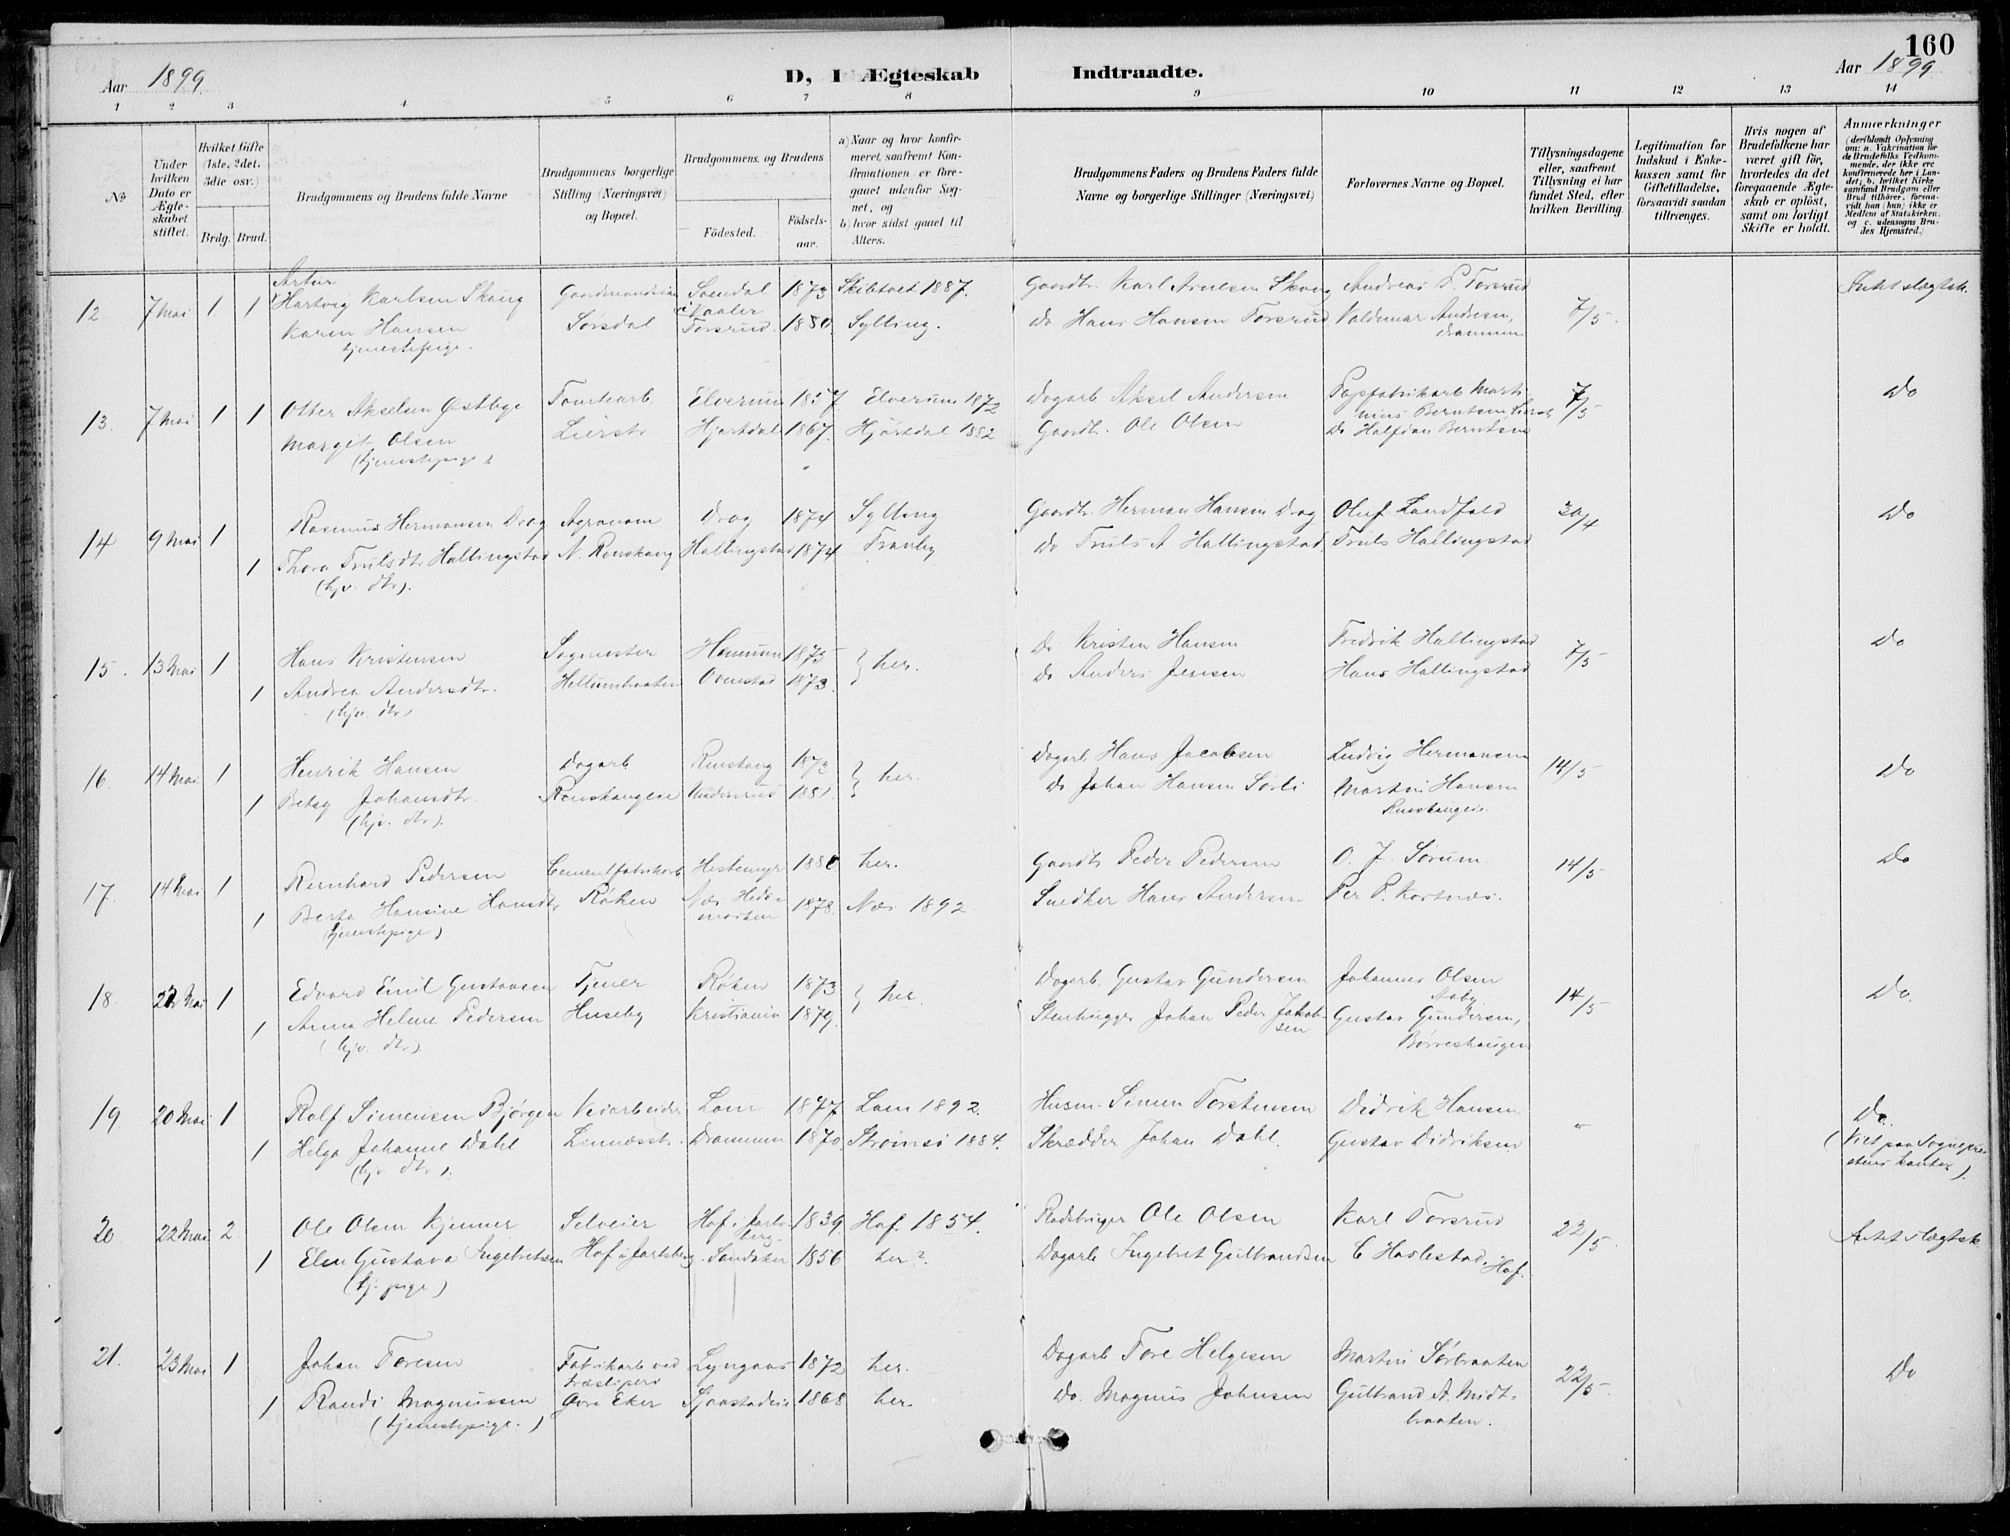 160
Aar 1899.
D, I Ægteskab Indtraadte.
Aar 1899.
1 2 3 4 5 6 7 8 9 10 11 12 13 14
No
Under hvilken Dato er Ægteskabet stiftet.
Hvilket Gifte (1ste, 2det, 3die osv.)
Brdg. Brud.
Brudgommens og Brudens fulde Navne
Brudgommens borgerlige Stilling (Næringsvei) og Bopæl.
Brudgommens og Brudens
Fødested.
Fødselsaar.
a) Naar og hvor konfirmeret, saafremt Konfirmationen er foregaaet udenfor Sognet, og
b) hvor sidst gaaet til Alters.
Brudgommens Faders og Brudens Faders fulde Navne og borgerlige Stillinger (Næringsvei)
Forlovernes Navne og Bopæl.
Tillysningsdagene eller, saafremt Tillysning ei har fundet Sted, efter hvilken Bevilling.
Legitimation for Indskud i Enkekassen samt for Giftetilladelse, forsaavidt saadan tiltrænges.
Hvis nogen af Brudefolkene har været gift før, hvorledes da det foregaaende Ægteskab er opløst, samt om lovligt Skifte er holdt.
Anmærkninger
(deriblandt Oplysning om: a. Vakcination for de Brudefolks Vedkommende, der ikke ere konfirmerede her i Landet; b. hvilket Kirkesamfund Brudgom eller Brud tilhører, forsaavidt han (hun) ikke er Medlem af Statskirken, og c. udensogns Brudes Hjemsted.)
Artur
12. 7 Mai 1 1 Hartvig Karlsen Skaug Gaardmandssøn Svendal 1873 Skibtvet 1887. Gaardbr. Karl Arnesen Skaug Andreas P. Torsrud 7/5. Intet slægtsk.
i Vaaler
Karen Hansen Sørsdal Torsrud 1880 Sylling. Do Hans Hansen Torsrud Valdemar Andresen,
tjenestepige. Drammen
13. 7 Mai 1 1 Otter Akselsen Østbye Tomtearb. Elverum 1857 Elverum 1872 Dagarb Aksel Andersen Papfabrikarb Marti- 7/5 Do
nius Berntsen
Marget Olsen Lierstr Hjartdal 1867. Hjartdal 1882 Gaardbr. Ole Olsen Do Halfdan Berntsen
(tjenestepige)
14 9 Mai 1 Rasmus Hermansen Drag Agronom Drag 1874 Sylling Gaardbr. Herman Hansen Drag Oluf Landfald 30/4 Do
1 Thora Trulsdtr Hallingstad N. Renskaug Hallingstad 1874 Tranby Do Truls A Hallingstad Truls Hallingstad
(hjv. dtr).
15. 13 Mai 1 Hans Kristensen Sagmester Hennum 1875 } her. Do Kristen Hansen Fredrik Hallingstad 7/5 Do
1 Andrea Andersdtr. Hellumbraaten Ovnstad 1873. Do Anders Jensen Hans Hallingstad
(hjv. dtr)
16. 14 Mai 1 Henrik Hansen Dagarb Renskaug 1873 } her. Dagarb Hans Jacobsen Ludvig Hermansen 14/5 Do
1 Betsy Johansdtr. Renskaugeie 1881. Do Johan Hansen Sørli Martin Hansen
(hjv. dtr). Renskaugeie
17. 14 Mai 1 Bernhard Pedersen Cementfabrikarb Hestemyr 1880 her. Gaardbr Peder Pedersen O. J. Sørum 14/5 Do
1 Berta Hansine Hansdtr Røken Næs Hede- 1878. Næs 1892 Snedker Hans Andersen Per P. Kortnæs.
(tjenestepige) marken
18. 22 Mai 1 Edvard Emil Gustavsen Tjener Røken 1873 } her. Dagarb. Gustav Gundersen Johannes Olsen 14/5 Do.
Staby
1 Anna Helene Pedersen Huseby Kristiania 1879. Stenhugger Johan Peder Jakob- Gustav Gundersen,
(hjv. dtr) sen Børreshaugen
19. 20 Mai 1 Rolf Simensen Bjørgen Veiarbeider Lom 1877 Lom 1892. Husm. Simen Torstensen Didrik Hansen " Do.
1 Helga Johanne Dahl Drammen 1870. Strømsø 1884. Skrædder Johan Dahl. Gustav Didriksen (Viet paa Sognepre-
(hjv. dtr). stens kontor).
20 22 Mai 2. Ole Olsen Kjenner Selveier Hof i Jarls- 1839. Hof 1854. Ole Olsen Karl Torsrud 22/5. Intet slægtsk
berg.
1 Elen Gustava Ingebretsen Hof i Jarlsberg. Sandaker 1856 her? Dagarb Ingebret Gulbrandsen C Haslestad, Hof.
(tj. pige)
21. 23 Mai 1 Johan Toresen Fabrikarb ved Lyngaas 1872 her. Dagarb Tore Helgesen Martin Sørbraaten 22/5. Do
træsliperi
1 Randi Magnussen Øvre Eker Sjaastadeie 1868 her. Do. Magnus Johnsen Gulbrand A. Midt-
(tjenestepige.) braaten.